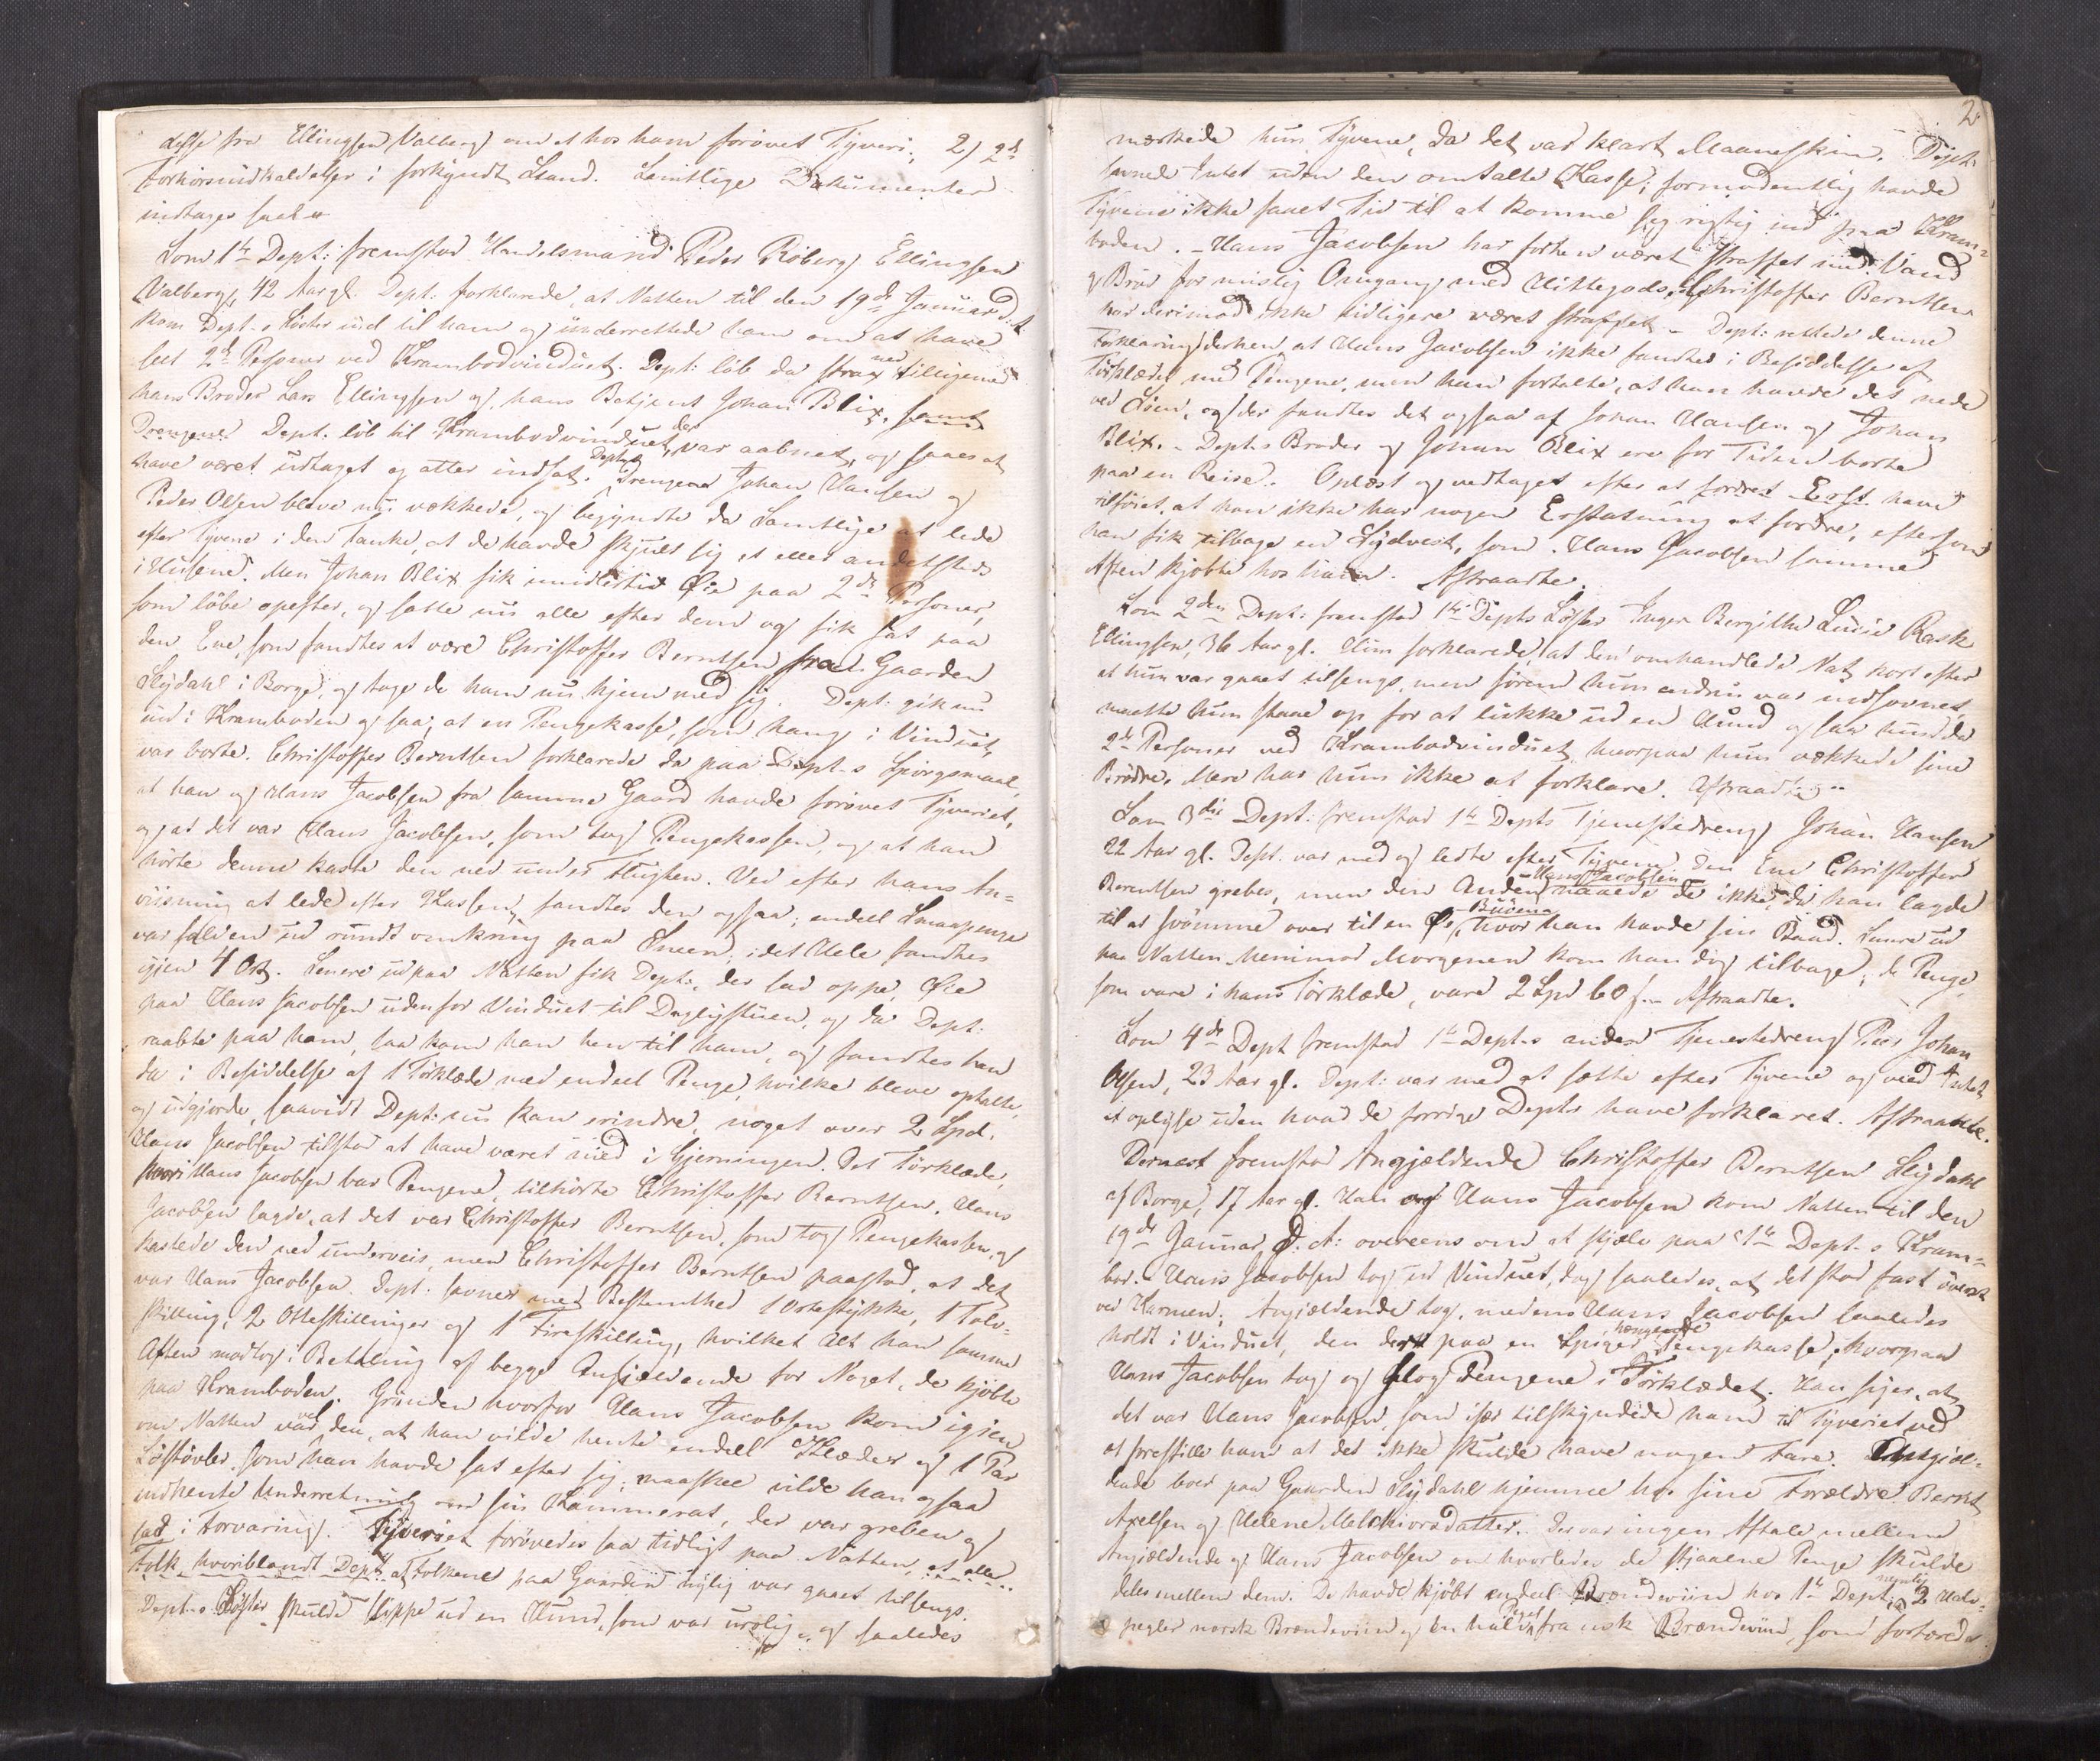 delse fra Ellingsen Valberg om et hos ham forövet Tyveri; 2) 2de
Forhörsindkaldelser i forkyndt Stand. Samtlige Dokumenter
indtages saal
Som 1ste Dept: fremstod Handelsmand Peder Röberg Ellingsen
Valberg, 42 Aar gl. Dept: forklarede, at Natten til den 19de Januar d.A.
kom Dept-s Söster ind til ham og underrettede ham om at have
seet 2de Personer ved Krambodvinduet. Dept: löb da strax ned tilligemed
hans Broder Lars Ellingsen og hans Betjent Johan Blix, samt
Drengene Dept. löb til Krambodvinduet, der var aabnet, og saaes at
have været udtaget og atter indsat. Depts Drenge Johan Hansen og
Peder Olsen bleve nu vækkede, og begyndte da Samtlige at lede
efter Tyvene i den Tanke, at de havde skjult sig et eller andetsteds
i Husene. Men Johan Blix fik imidlertid Öie paa 2de Personer,
som löbe opefter, og satte nu alle efter dem og fik fat paa
den Ene, som fandtes at være Christoffer Berntsen fra Gaarden
Slydahl i Borge, og toge de ham nu hjem med sig. Dept: gik nu
ind i Kramboden og saa, at en Pengekasse, som hang i Vinduet,
var borte. Christoffer Berntsen forklarede da paa Dept-s Spörgsmaal,
at han og Hans Jacobsen fra samme Gaard havde forövet Tyveriet,
og at det var Hans Jacobsen, som tog Pengekassen, og at han
hörte denne kaste den ned under Flugten. Ved efter hans An=
viisning at lede efter Kassen, fandtes den ogsaa; endeel Smaapenge
var falden ud rundt omkring paa Sneen; i det Hele fandtes
igjen 4 Ort. Senere ud paa Natten fik Dept:, der sad oppe, Öie
paa Hans Jacobsen udenfor Vinduet til Dagligstuen, og da Dept:
raabte paa ham, saa kom han hen til ham, og fandtes han
da i Besiddelse af 1 Törklæde med endeel Penge, hvilke bleve optalte,
og udgjorde, saavidt Dept: nu kan erindre, noget over 2 Spd.
Hans Jacobsen tilstod at have været med i Gjerningen. Det Törklæde,
hvori Hans Jacobsen bar Pengene, tilhörte Christoffer Berntsen. Hans
Jacobsen sagde, at det var Christoffer Berntsen, som tog Pengekassen, og
kastede den ned underveis, men Christoffer Berntsen paastod, at det
var Hans Jacobsen. Dept: savner med Bestemthed 1 Ortestykke, 1 Tolv=
skilling, 2 Otteskillinger og 1 Fireskilling, hvilket Alt han samme
Aften modtog i Betaling af begge Angjældende for Noget, de kjöbte
paa Kramboden. Grunden hvorfor Hans Jacobsen kom igjen
om Natten var vel den, at han vilde hente endeel Klæder og 1 Par
Söstövler, som han havde sat efter sig; maaskee vilde han ogsaa
indhente Underretning om sin Kammerat, der var greben og
sad i Forvaring. Tyveriet forövedes saa tidligt paa Natten, at alle
Folk, hvoriblandt Dept, at Folkene paa Gaarden nylig var gaaet tilsengs.
Dept-s Söster skulde slippe ud en Hund, som var urolig, og saaledes
2
mærkede hun Tyvene, da det var klart Maaneskin. Dept:
savnede Intet uden den omtalte Kasse; formodentlig havde
Tyvene ikke faaet Tid til at komme sig rigtig ind paa Kram=
boden. - Hans Jacobsen har forhen været straffet med Vand
og Bröd for mislig Omgang med Hittegods, Christoffer Berntsen
har derimod ikke tidligere været straffet. - Dept: rettede denne
Forklaring derhen at Hans Jacobsen ikke fandtes i Besiddelse af
Törklædet med Pengene, men han fortalte, at han havde det nede
ved Söen, og der fandtes det ogsaa af Johan Hansen og Johan
Blix. - Dept-s Broder og Johan Blix ere for Tiden borte
paa en Reise. Oplæst og vedtaget efter at have
tilföiet, at han ikke har nogen Erstatning at fordre, eftersom
han fik tilbage en Sydvest, som Hans Jacobsen samme
Aften kjöbte hos ham. Aftraadte.
Som 2den Dept: fremstod 1ste Depts Söster Inger Bergitha Lucie Rask
Ellingsen, 36 Aar gl. Hun forklarede, at den omhandlede Nat, kort efter
at hun var gaaet tilsengs, men förend hun endnu var indsovnet,
maatte hun staae op for at lukke ud en Hund og saa hun da
2de Personer ved Krambodvinduet, hvorpaa hun vækkede sine
Brödre. Mere har hun ikke at forklare. Aftraadte.
Som 3die Dept: fremstod 1ste Depts Tjenestedreng Johan Hansen,
22 Aar gl. Dept. var med og ledte efter Tyvene. Den Ene Christoffer
Berntsen grebes, men den Anden, Hans Jacobsen naaede de ikke, da han lagde
til at svömme over til en Ö, Buöerne, hvor han havde sin Baad. Senere ud
paa Natten henimod Morgenen kom han dog tilbage; de Penge,
som vare i hans Törklæde, vare 2 Spd 60 ʃ. - Aftraadte.
Som 4de Dept fremstod 1ste Dept-s anden Tjenestedreng Peder Johan
Olsen, 23 Aar gl. Dept: var med at sætte efter Tyvene og veed Intet
at oplyse uden hvad de forrige Depts have forklaret. Aftraadte.
Dernæst fremstod Angjældende Christoffer Berntsen Slydahl
af Borge, 17 Aar gl. Han og Hans Jacobsen kom Natten til den
19de Januar d: A: overeens om at stjæle paa 1ste Dept-s Kram=
bod. Hans Jacobsen tog ud Vinduet, dog saaledes, at det stod fast överst
ved Karmen; Angjældende tog, medens Hans Jacobsen saaledes
holdt i Vinduet, den der paa en Spiger hængende Pengekasse, hvorpaa
Hans Jacobsen tog og slog Pengene i Törklædet. Han siger, at
det var Hans Jacobsen, som især tilskyndede ham til Tyveriet ved
at forestille ham at det ikke skulde have nogen Fare. Angjæl=
dende boer paa Gaarden Slydahl hjemme hos sine Forældre Bernt
Axelsen og Helene Melchiorsdatter. Der var ingen Aftale mellem
Angjældende og Hans Jacobsen om hvorledes de stjaalne Penge skulde
deles mellem dem. De havde kjöbt endeel Brændeviin hos 1ste Dept:, nemlig 2 Halv=
pegler norsk Brændeviin og en halv Pegel fransk Brændeviin, som fortæredes